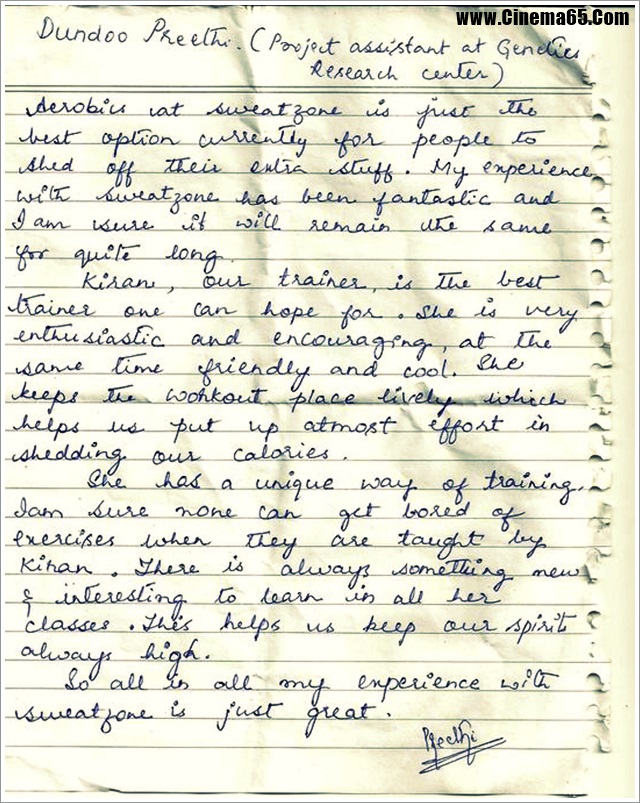 www.Cinema65.Com
Dundoo Preethi. (Project assistant at Genetics
Research center)
Aerobics at sweatzone is just the
best option currently for people to
shed off their extra stuff. My experience
with sweatzone has been fantastic and
I am sure it will remain the same
for quite long.
Kiran, our trainer, is the best
trainer one can hope for. She is very
enthusiastic and encouraging, at the
same time friendly and cool. She
keeps the workout place lively which
helps us put up atmost effort in
shedding our calories.
She has a unique way of training.
I am sure none can get bored of
exercises when they are taught by
Kiran. There is always something new
& interesting to learn in all her
classes. This helps us keep our spirits
always high.
So all in all my experience with
sweatzone is just great.
Preethi